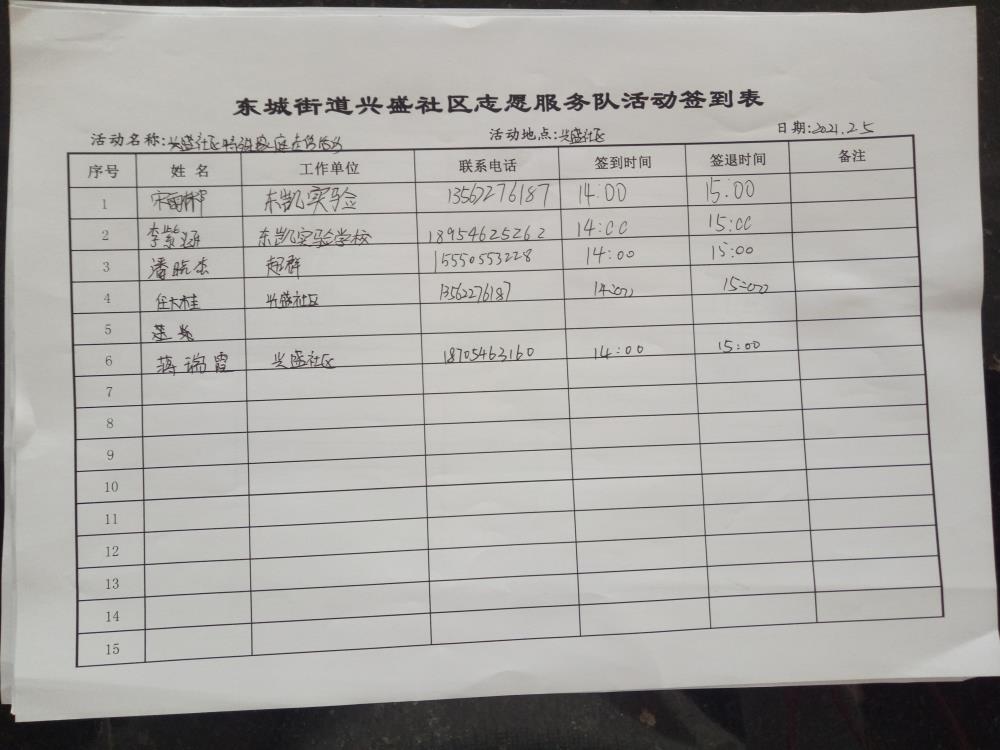 东城街道兴盛社区志愿服务队活动签到表
活动名称:兴盛社区特殊家庭走访活动 活动地点:兴盛社区 日期:2021.2.5
序号 姓名 工作单位 联系电话 签到时间 签退时间 备注
1 东凯实验 13562276187 14:00 15:00
2 李紫涵 东凯实验学校 18954625262 14:00 15:00
3 潘晓杰 超群 15550553228 14:00 15:00
4 任大桂 兴盛社区 13562276187 14:00 15:00
5
6 蒋瑞霞 兴盛社区 18705463160 14:00 15:00
7
8
9
10
11
12
13
14
15